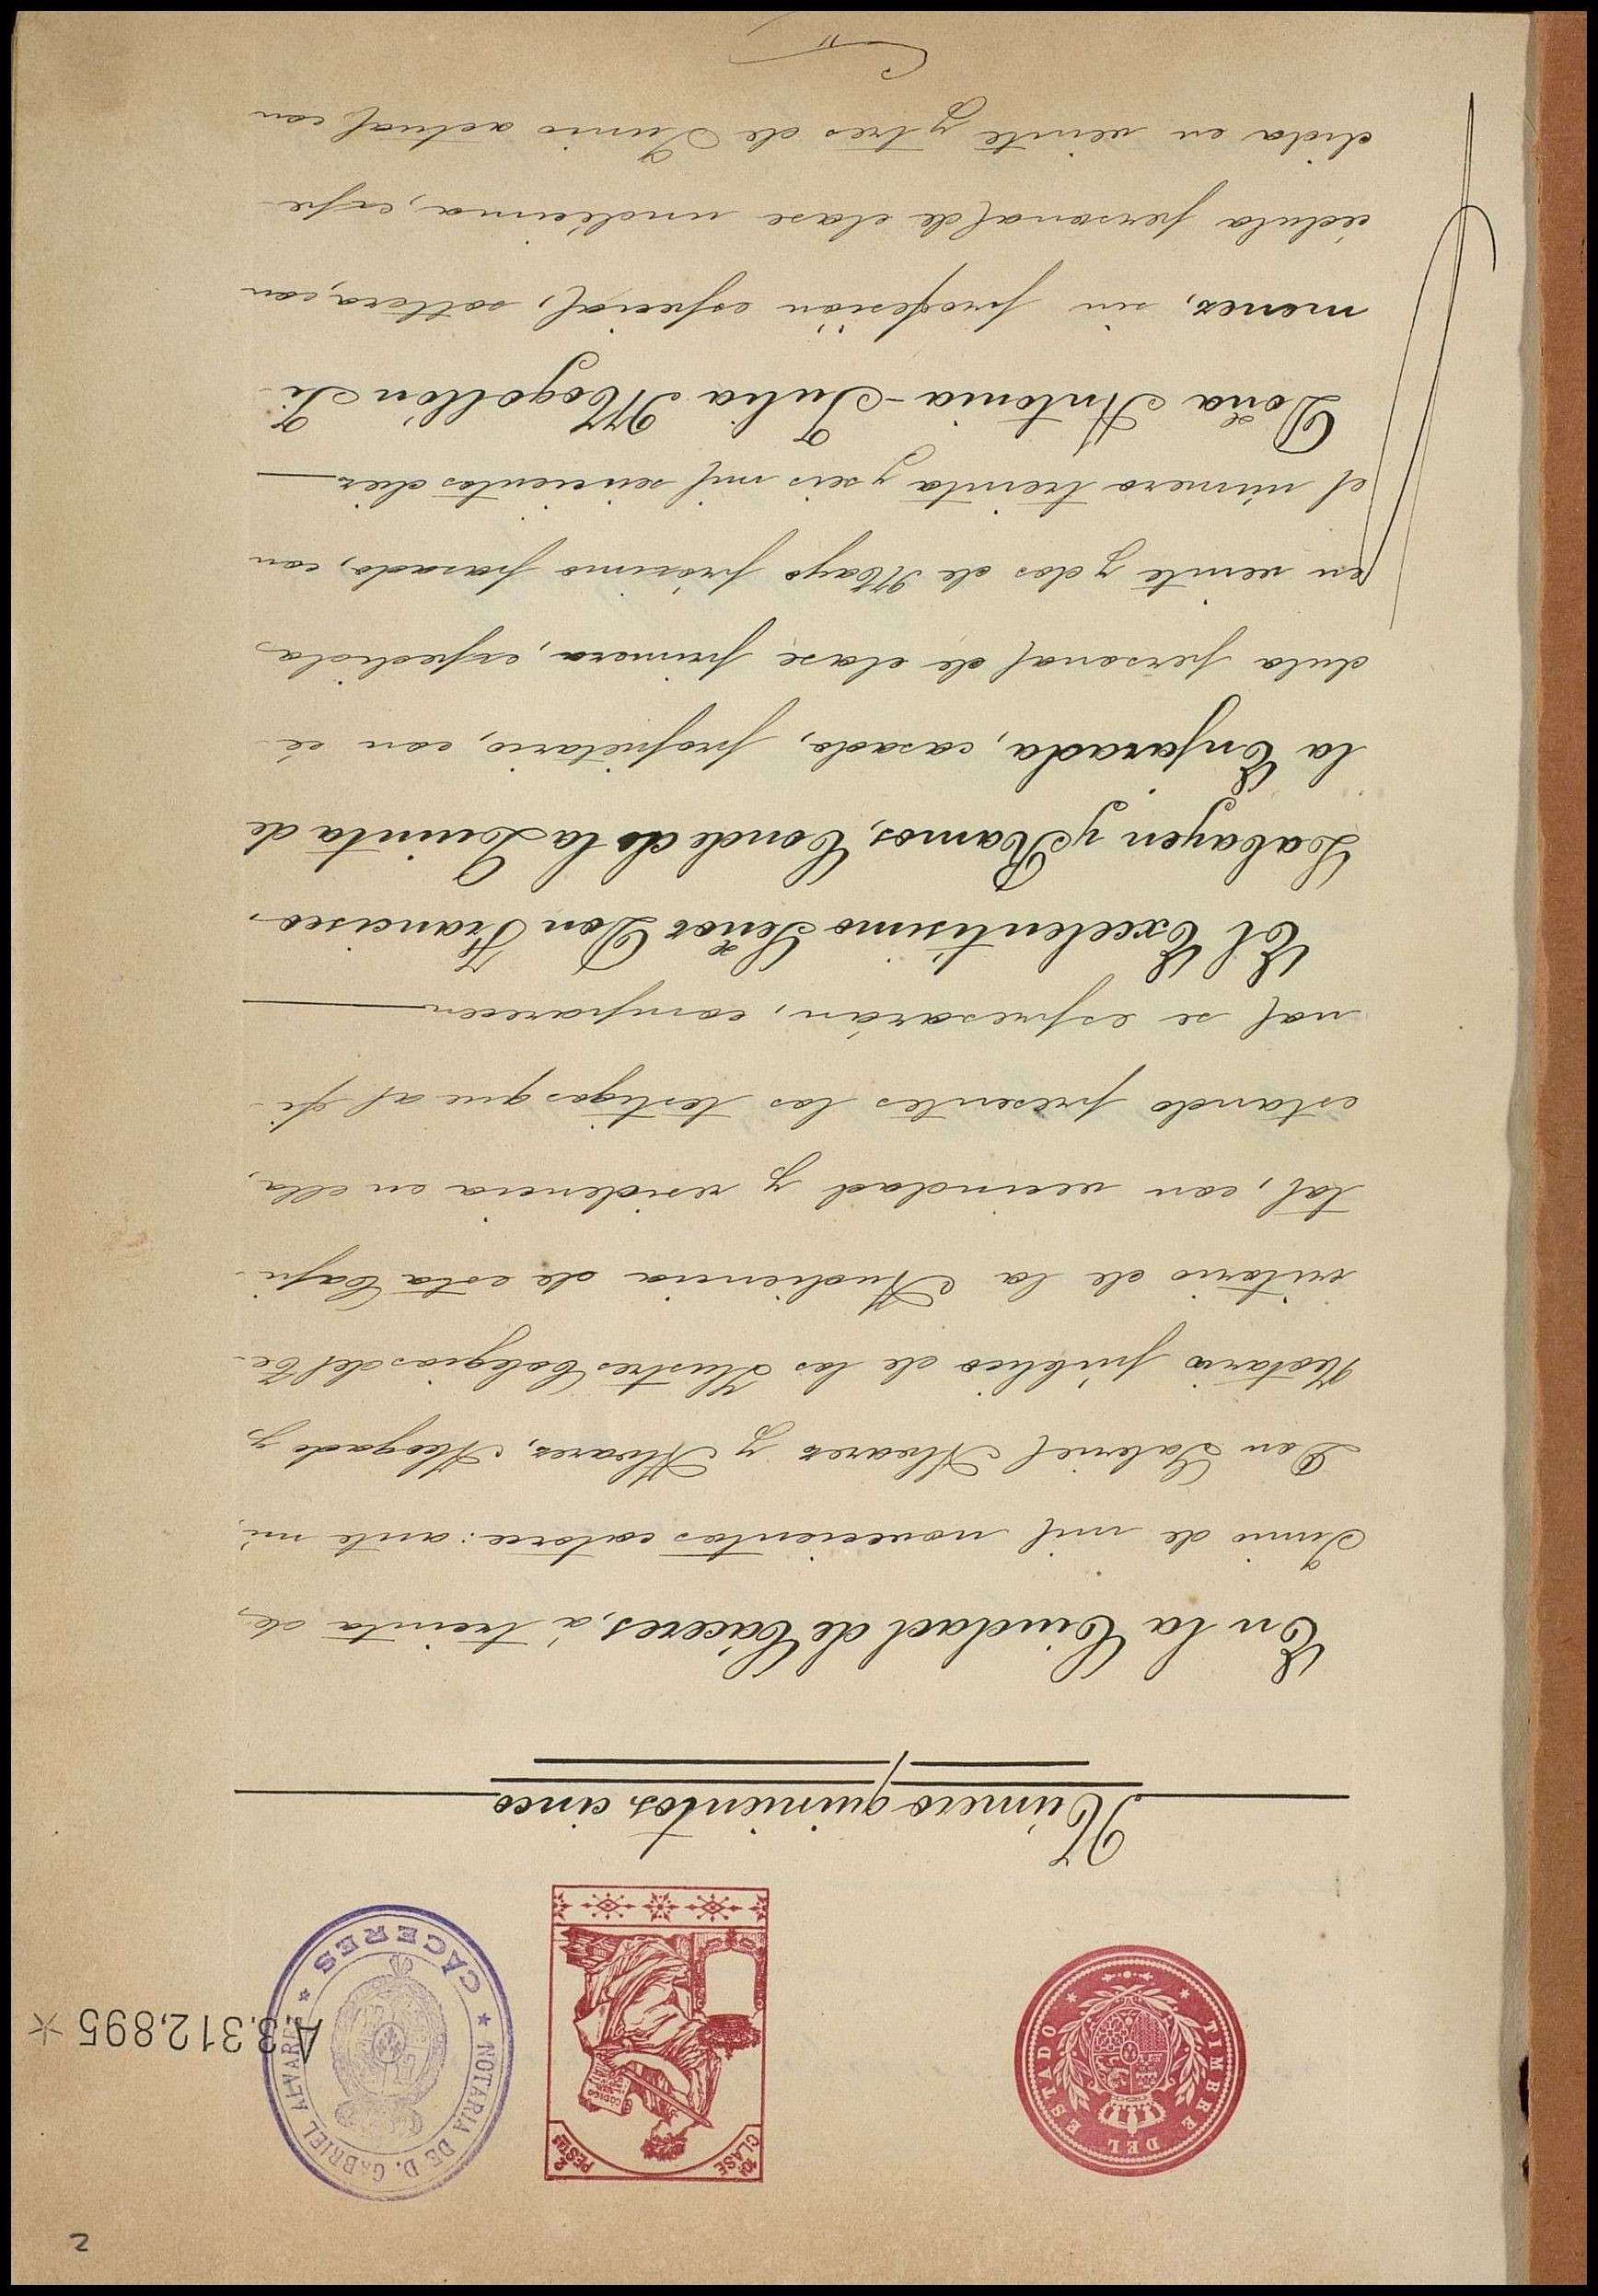 2
TIMBRE DEL ESTADO
10ª CLASE
2 PESTAS
CODIGO
NOTARIA DE D. GABRIEL ALVAREZ
CACERES
A.3.312,895 *
Número quinientos cinco
En la Ciudad de Cáceres, á treinta de
Junio de mil novecientos catorce: ante mi,
Don Gabriel Alvarez y Alvarez, Abogado y
Notario público de los Ilustres Colegios del Te-
rritorio de la Audiencia de esta Capi-
tal, con vecindad y residencia en ella,
estando presentes los testigos que al fi-
nal se espresarán, comparecen
El Excelentísimo Señor Don Francisco
Zabayen y Ramos, Conde de la Quinta de
la Enjarada, casado, propietario, con cé-
dula personal de clase primera, espedida
en veinte y dos de Mayo próximo pasado, con
el número treinta y seis mil seiscientos diez
Doña Antonia-Julia Mogollón Ji-
menez, sin profesión especial, soltera, con
cédula personal de clase undécima, espe-
dida en veinte y tres de Junio actual con